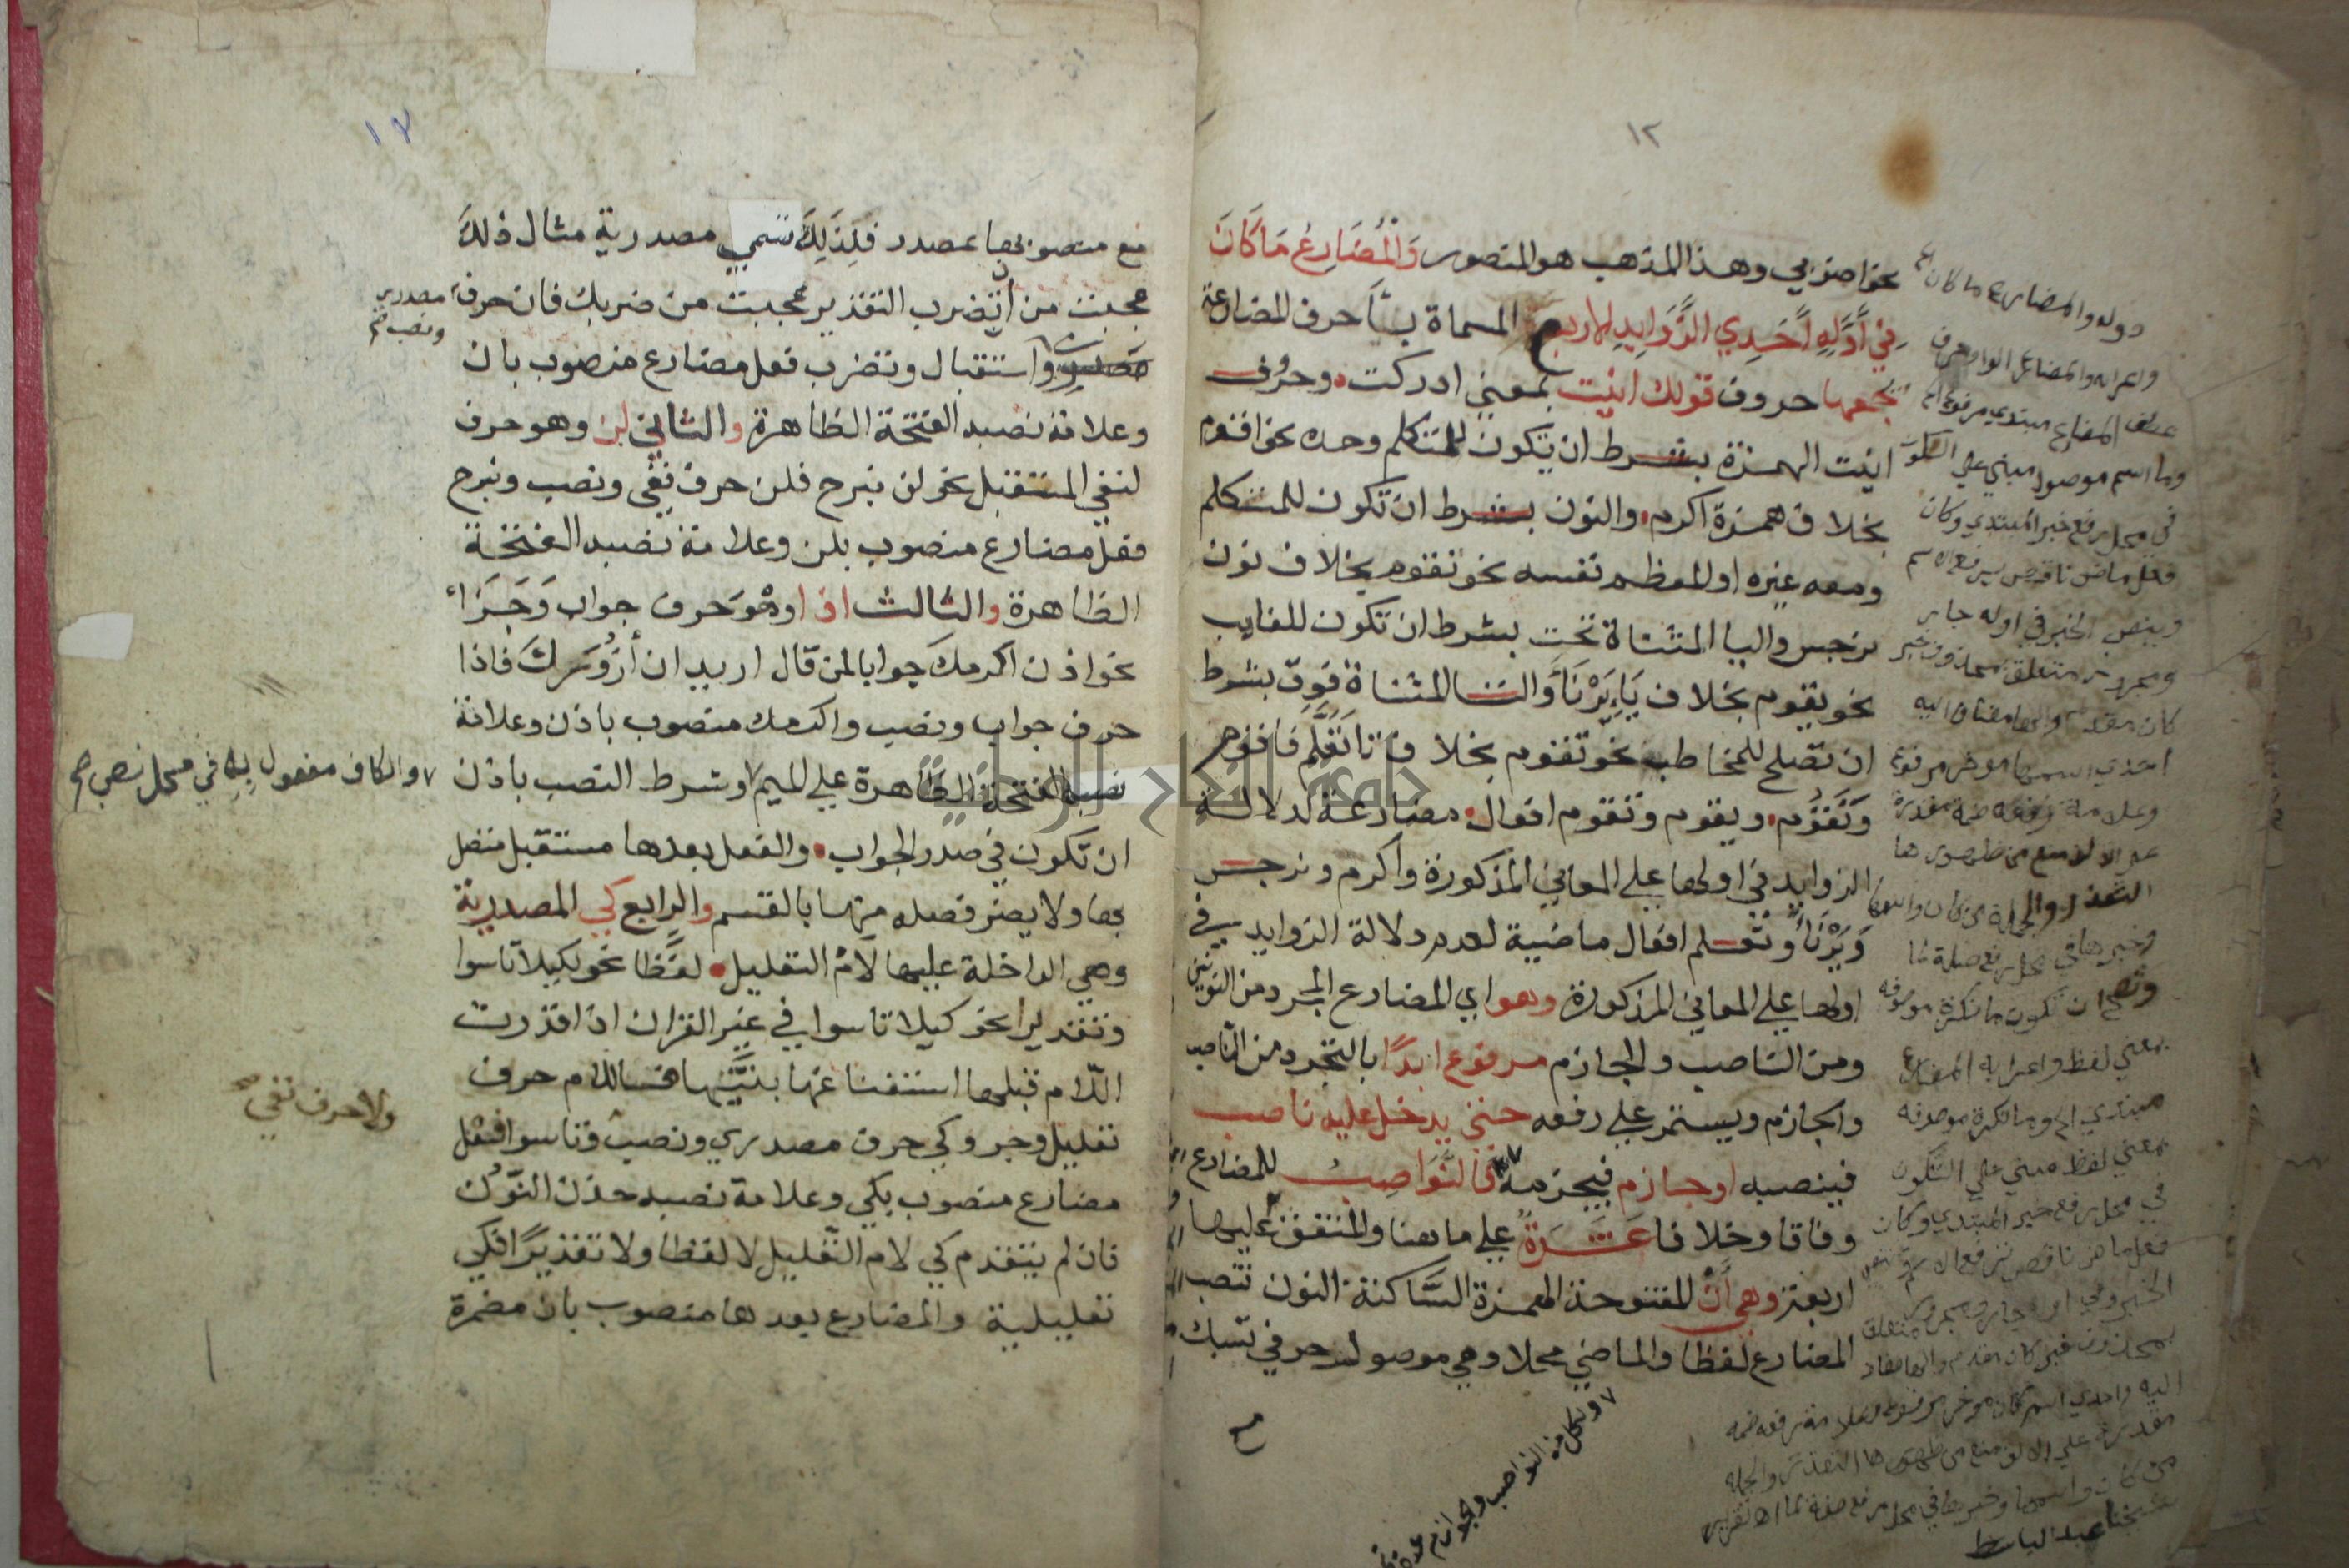 ١٢
نحو اضربي وهذا المذهب هو المنصور والمضارع ما كان
في أوله إحدى الزوايد الاربع المسماة باحرف المضارعة
يجمعها حروف قولك انيت بمعنى ادركت وحروف
انيت الهمزة بشرط ان تكون للمتكلم وحده نحو اقوم
بخلاف همزة اكرم والنون بشرط ان تكون للمتكلم
ومعه غيره او المعظم نفسه نحو نقوم بخلاف نون
نرجس واليا المثناة تحت بشرط ان تكون للغايب
نحو يقوم بخلاف ياء يرنأ والتا المثناة فوق بشرط
ان تصلح للمخاطب نحو تقوم بخلاف تا تعلم فاقوم
ونقوم ويقوم وتقوم افعال مضارعة لدلالة
الزوايد في اولها علي المعاني المذكورة واكرم ونرجس
ويرنأ وتعلم افعال ماضية لعدم دلالة الزوايد في
اولها علي المعاني المذكورة وهو اي المضارع المجرد من النونين
ومن الناصب والجازم مرفوع ابدا بالتجرد من الناصب
والجازم ويستمر علي رفعه حتي يدخل عليه ناصب
فينصبه او جازم فيجزمه فالنواصب للمضارع
وفاقا وخلافا عشرة علي ما هنا والمتفق عليها
اربعة وهي أن المفتوحة الهمزة الساكنة النون تنصب
المضارع لفظا والماضي محلا وهي موصول حرفي تسبك
قوله والمضارع ما كان الخ
عطف المضارع مبتدي مرفوع
وما اسم موصول مبني علي السكون
في محل رفع خبر المبتدي وكان
فعل ماض ناقص يرفع الاسم
وينصب الخبر في اوله جار
ومجرور متعلق بمحذوف خبر
كان مقدم والها مضاف اليه
احدي اسمها موخر مرفوع
وعلامة رفعه ضمة مقدرة
علي الالف منع من ظهورها
التعذر والجملة من كان واسمها
وخبرها في محل رفع صلة ما
ويصح ان تكون ما نكرة موصوفة
بمعني لفظ واعرابه المضارع
مبتدي الخ وما نكرة موصوفة
بمعني لفظ مبني علي السكون
في محل رفع خبر المبتدي وكان
فعل ماض ناقص ترفع الاسم وتنصب
الخبر وفي اوله جار ومجرور متعلق
بمحذوف خبر كان مقدم والها مضاف
اليه واحدي اسم كان موخر مرفوع وعلامة رفعه ضمة
مقدرة علي الالف منع من ظهورها التعذر والجملة
من كان واسمها وخبرها في محل رفع صفة لما اه تقرير
شيخنا عبد الباسط
١٣
مع منصوبها بمصدر فلذلك تسمي مصدرية مثال ذلك
عجبت من ان تضرب التقدير عجبت من ضربك فان حرف
مصدري ونصب صح
واستقبال وتضرب فعل مضارع منصوب بان
وعلامة نصبه الفتحة الظاهرة والثاني لن وهو حرف
لنفي المستقبل نحو لن نبرح فلن حرف نفي ونصب ونبرح
فعل مضارع منصوب بلن وعلامة نصبه الفتحة
الظاهرة والثالث اذا وهو حرف جواب وجزاء
نحو اذن اكرمك جوابا لمن قال اريد ان أزورك فاذا
حرف جواب ونصب واكرمك منصوب باذن وعلامة
نصبه الفتحة الظاهرة علي الميم وشرط النصب باذن
والكاف مفعول به في محل نصب صح
ان تكون في صدر الجواب والفعل بعدها مستقبل متصل
بها ولا يضر فصله منها بالقسم والرابع كي المصدرية
وهي الداخلة عليها لام التعليل لفظا نحو لكيلا تاسوا
وتقديرا نحو كيلا تاسوا في غير القران اذا قدرت
اللام قبلها استغنا عنها بنيتها فاللام حرف
تعليل وجر وكي حرف مصدري ونصب وتاسوا فعل
ولا حرف نفي صح
مضارع منصوب بكي وعلامة نصبه حذف النون
فان لم يتقدم كي لام التعليل لا لفظا ولا تقديرا فكي
تعليلية والمضارع بعدها منصوب بان مضمرة
جامعة النجاح الوطنية